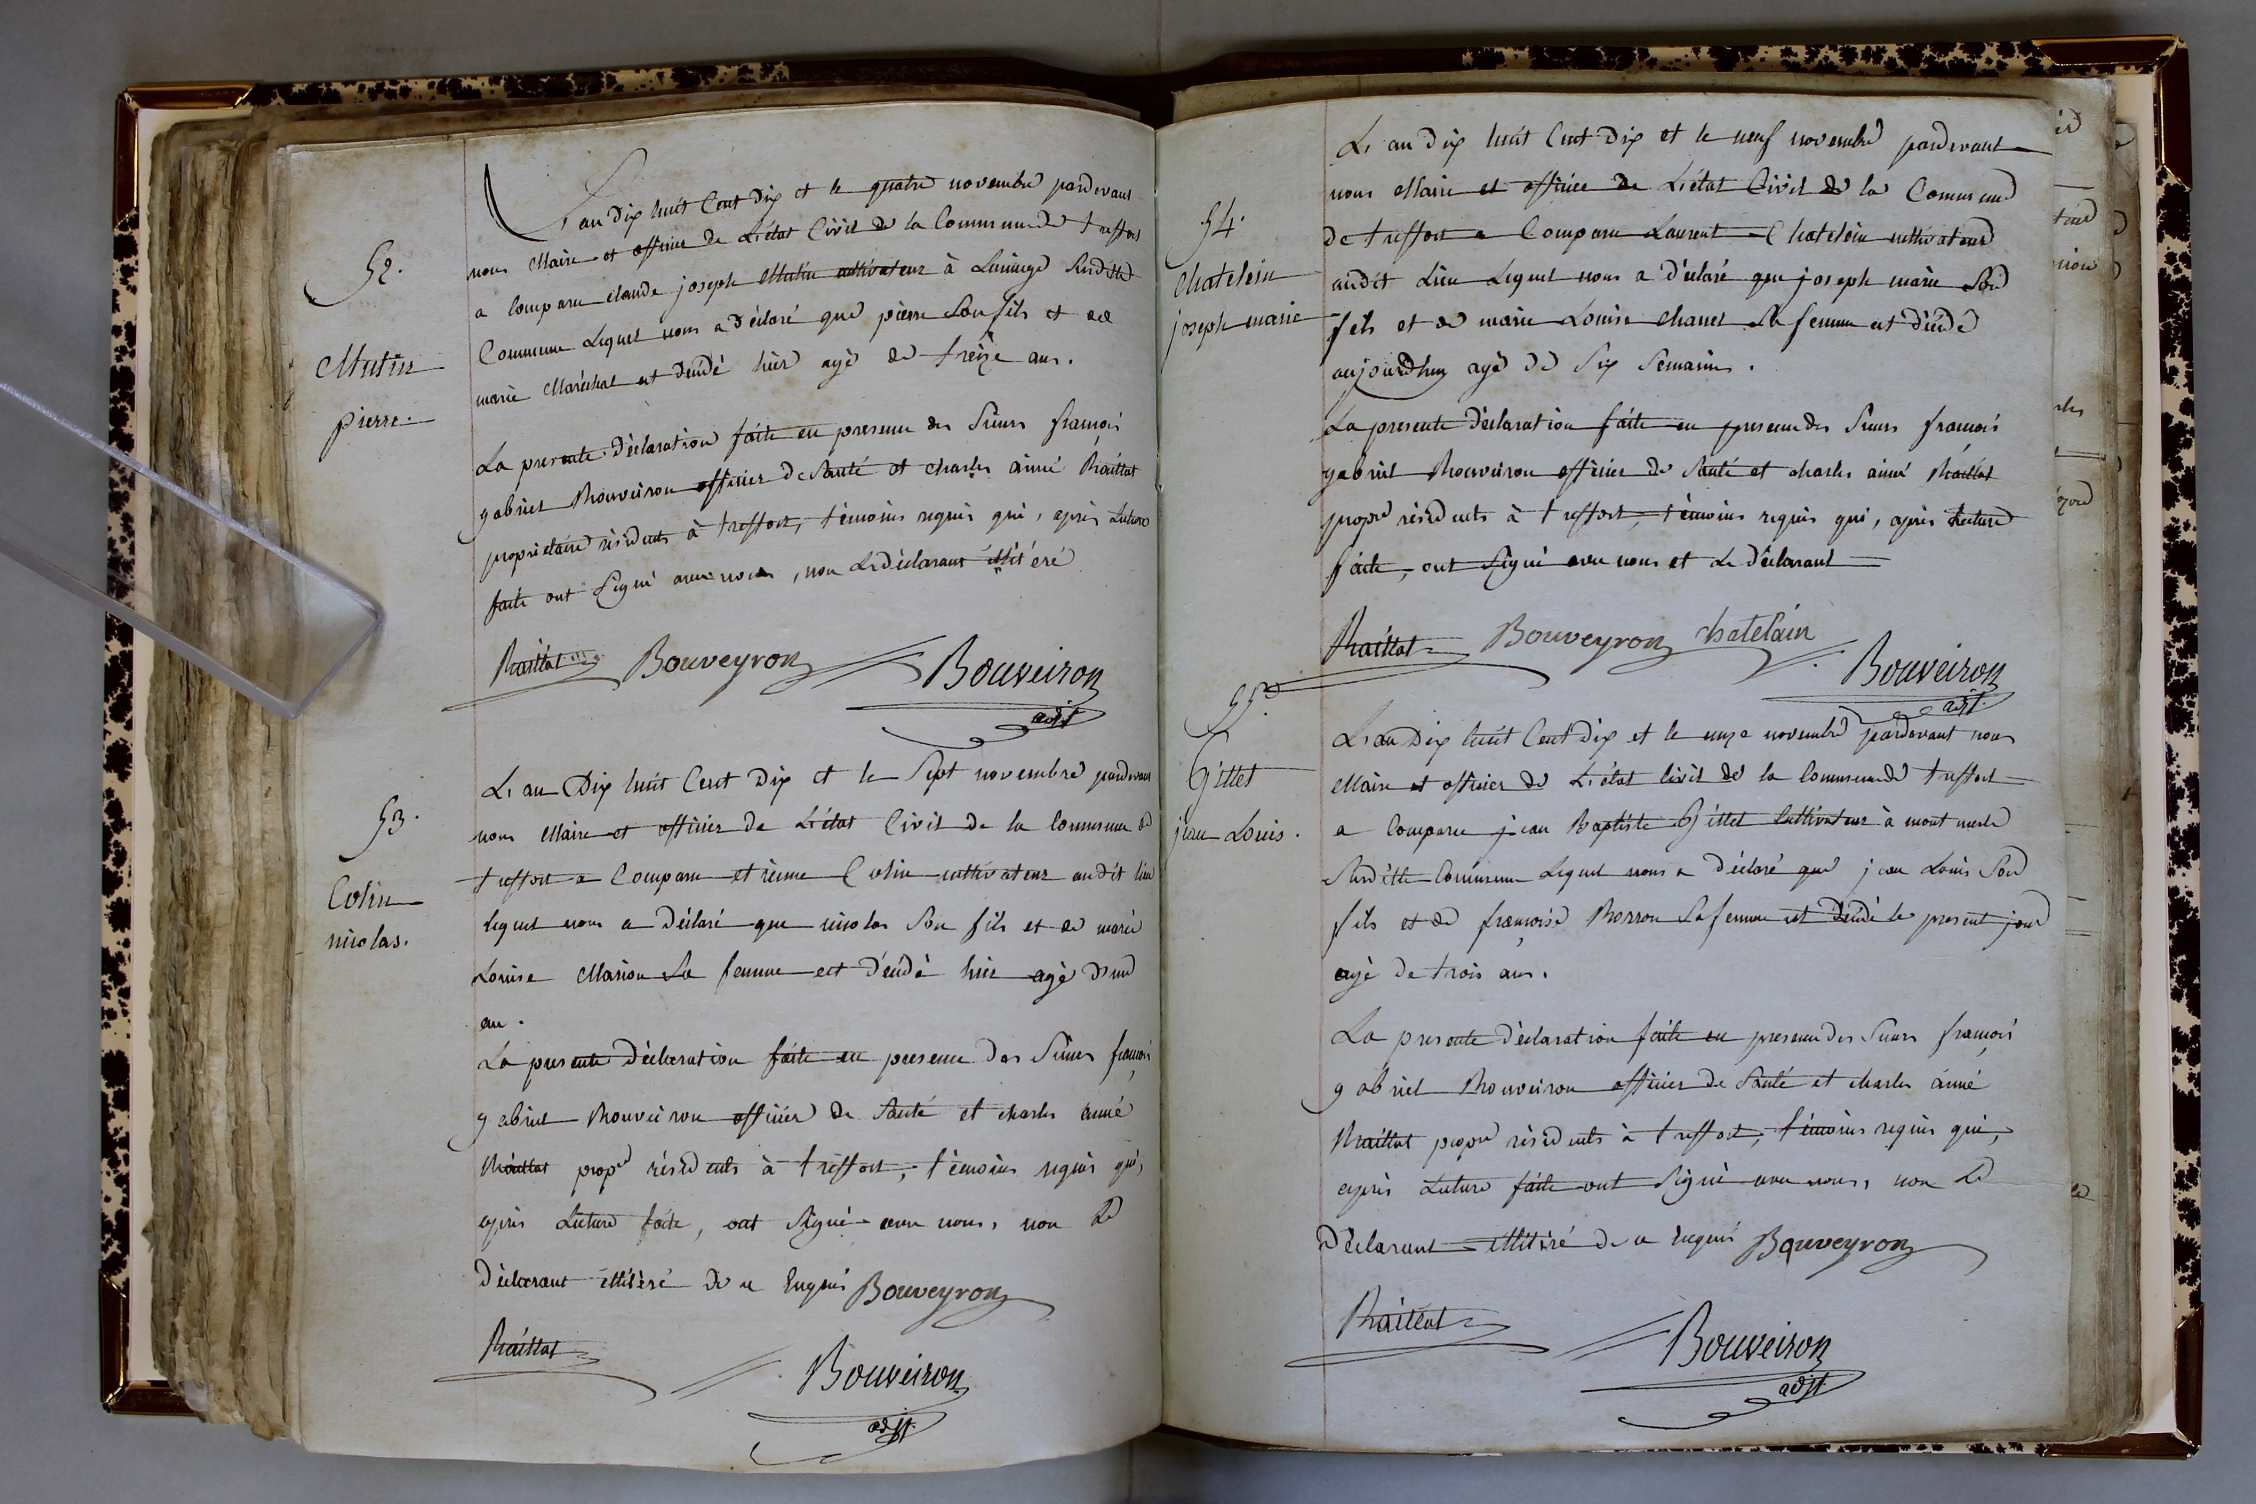 52.
Mutin
pierre.
L'an dix huit Cent dix et le quatre novembre pardevant
nous Maire et officier de L'état Civil de la Commune de treffort
a Comparu claude joseph Mutin cultivateur à Lucinge Susditte
Commune Lequel nous a déclaré que pierre Son fils et de
marie Maréchal est décédé hier agé de treize ans.
La presente déclaration faite en presence des Sieurs françois
gabriel Bouveiron officier de Santé et charles aimé Raittat
propriétaire résidents à treffort, témoins requis qui, après Lecture
faite ont Signé avec nous, non Le déclarant illitéré
Raittat Bouveyron Bouveiron
adjt
53.
Colin
nicolas.
L'an Dix huit Cent Dix et le Sept novembre pardevant
nous Maire et officier de L'état Civil de la Commune de
treffort a Comparu etienne Colin cultivateur audit lieu
lequel nous a déclaré que nicolas Son fils et de marie
Louise Marion Sa femme est décédé hier agé d'un
an.
La presente déclaration faite en presence des Sieurs françois
gabriel Bouveiron officier de Santé et charles aimé
Raittat propre résidents à treffort, témoins requis qui,
après Lecture faite, ont Signé avec nous, non Le
Déclarant illitéré de ce Enquis Bouveyron
Raittat Bouveiron
adjt.
54.
Chatelain
joseph marie
L'an dix huit Cent dix et le neuf novembre pardevant
nous Maire et officier de L'état Civil de la Commune
de treffort a Comparu Laurent Chatelain cultivateur
audit Lieu Lequel nous a déclaré que joseph marie Son
fils et de marie Louise Chanel Sa femme est décédé
aujourdhuy agé de Six Semaines.
La presente déclaration faite en presence des Sieurs françois
gabriel Bouveiron officier de Santé et charles aimé Raittat
propre résidents à treffort, témoins requis qui, après Lecture
faite, ont Signé avec nous et Le déclarant
Raittat Bouveyron chatelain
Bouveiron
adjt.
55.
Gillet
jean Louis.
L'an Dix huit Cent Dix et le onze novembre pardevant nous
Maire et officier de L'état Civil de la Commune de treffort
a Comparu jean Baptiste Gillet Cultivateur à mont merle
Susditte Commune Lequel nous a déclaré que jean Louis Son
fils et de françoise Borron Sa femme est décédé le present jour
agé de trois ans.
La presente déclaration faite en presence des Sieurs françois
gabriel Bouveiron officier de Santé et charles aimé
Raittat propre résidents à treffort, témoins requis qui,
après Lecture faite ont Signé avec nous, non Le
Déclarant illitéré de ce Enquis Bouveyron
Raittat Bouveiron
adjt.